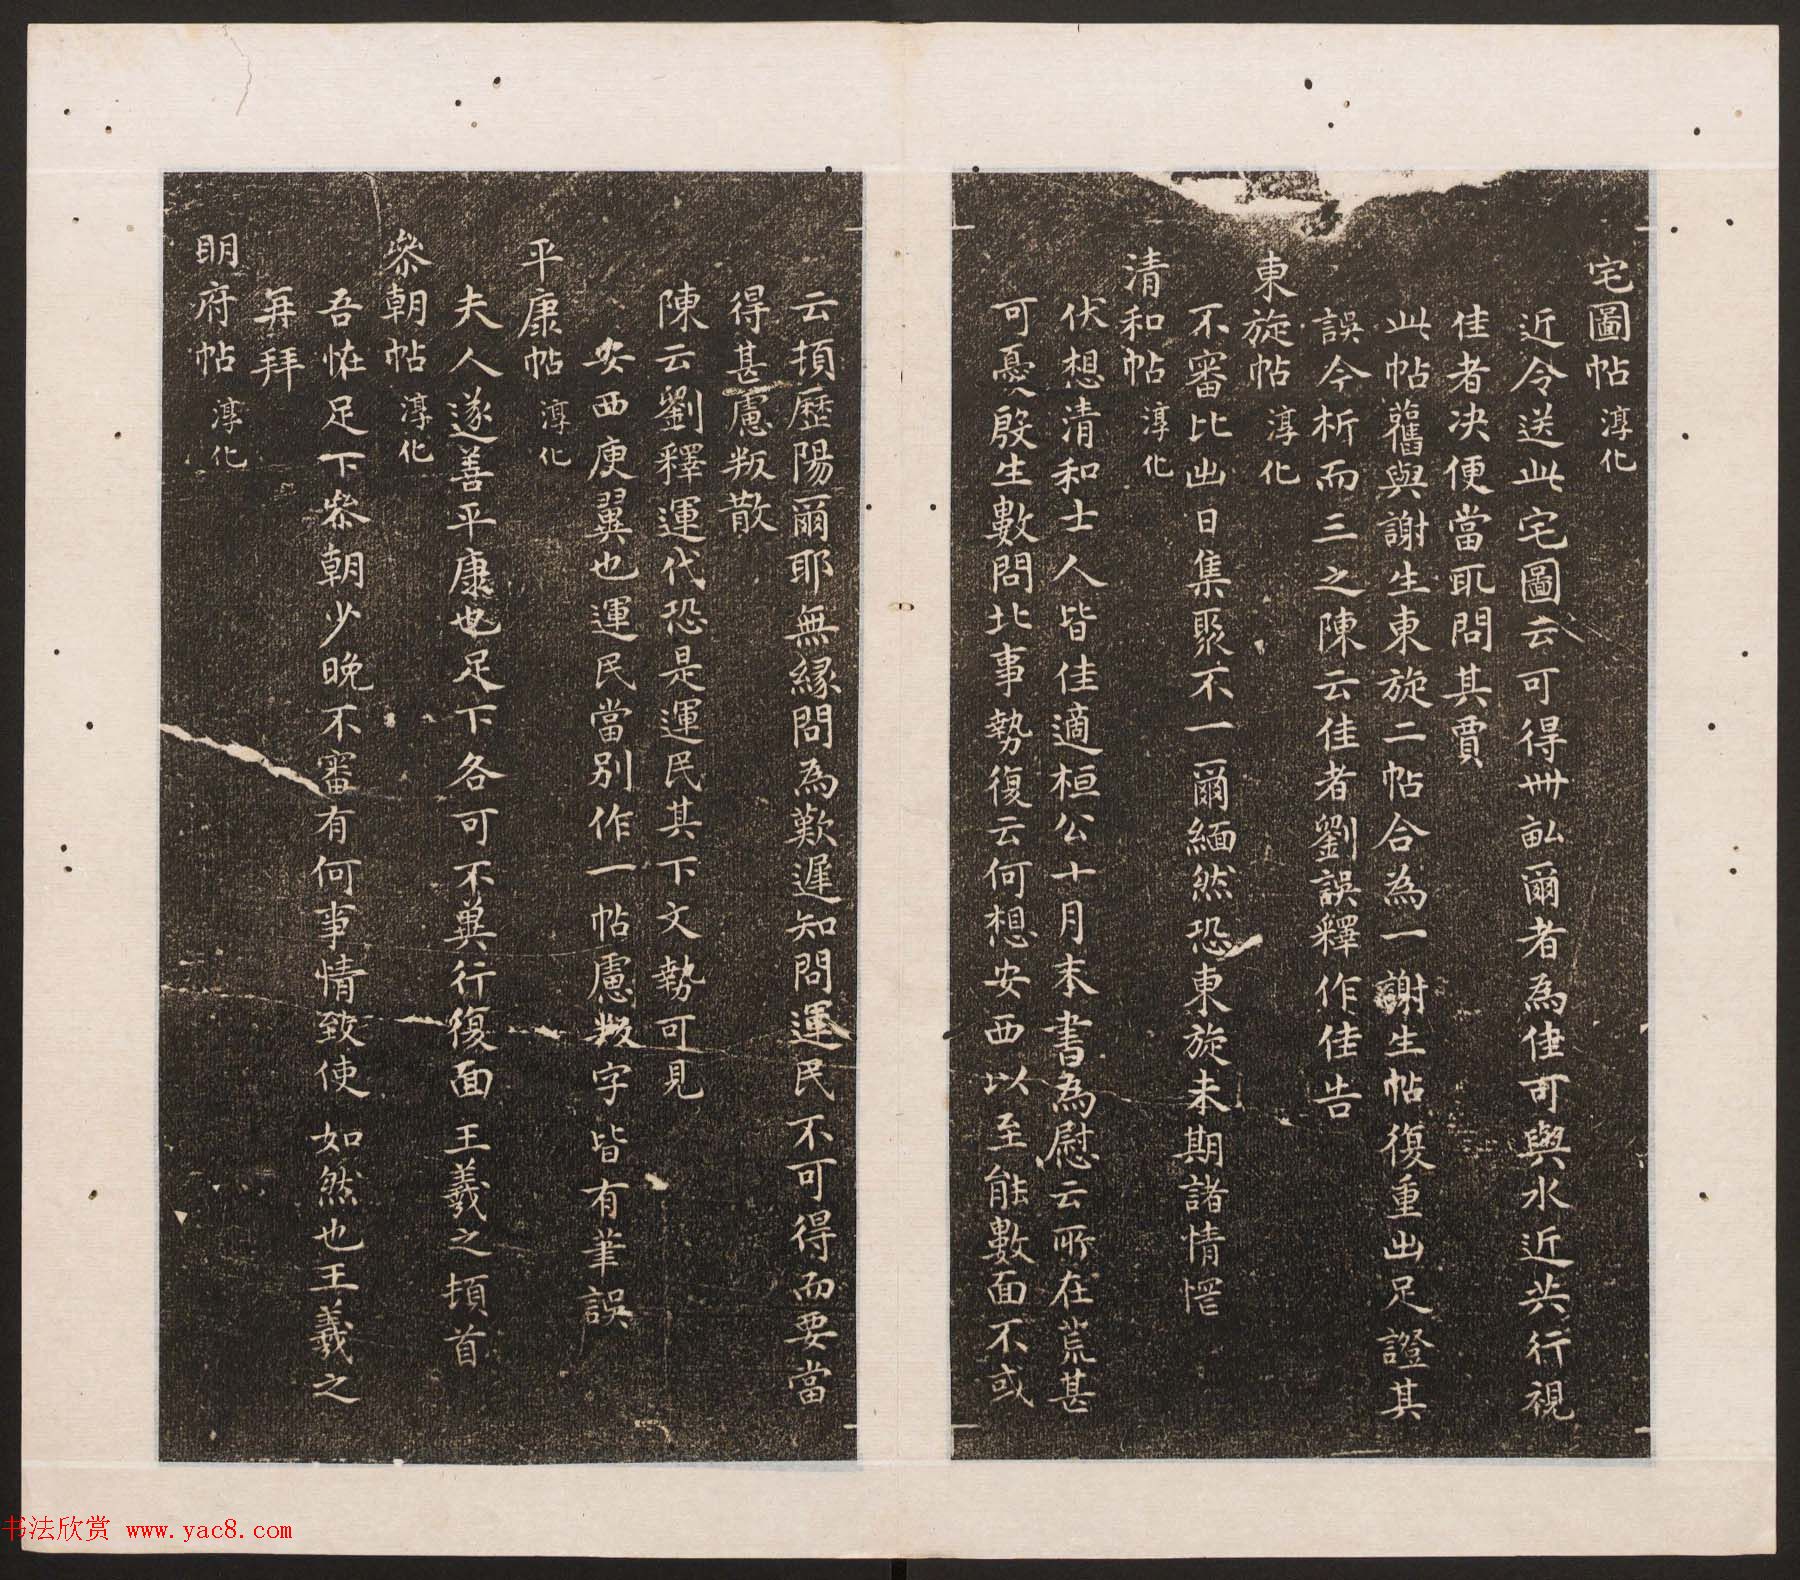 宅圖帖 淳化
近令送此宅圖云可得卌畝爾者為佳可與水近共行視
佳者决便當取問其賈
此帖舊與謝生東旋二帖合為一謝生帖復重出足證其
誤今析而三之陳云佳者劉誤釋作佳告
東旋帖 淳化
不審比出日集聚不一爾緬然恐東旋未期諸情罔
清和帖 淳化
伏想清和士人皆佳適桓公十月末書為慰云所在荒甚
可憂殷生數問北事勢復云何想安西以至能數面不或
云頓歷陽爾耶無緣問為歎遲知問運民不可得而要當
得甚慮叛散
陳云劉釋運代恐是運民其下文勢可見
安西庾翼也運民當別作一帖慮叛字皆有筆誤
平康帖 淳化
夫人遂善平康也足下各可不冀行復面 王羲之頓首
叅朝帖 淳化
吾怪足下叅朝少晚不審有何事情致使 如然也王羲之
再拜
明府帖 淳化
书法欣赏 www.yac8.com